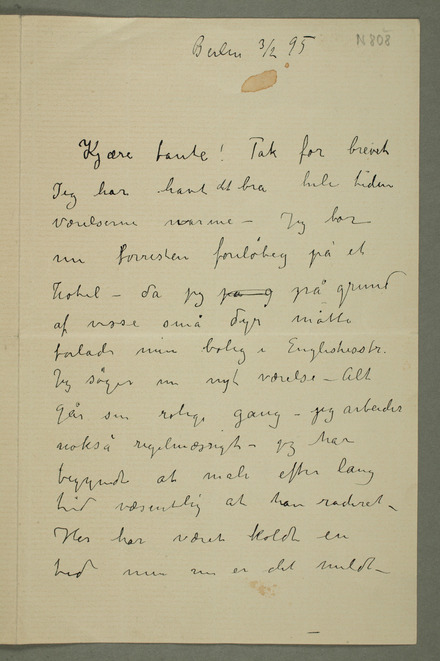 N 808
Berlin 3/2 95
Kjære tante! Tak for brevet
Jeg har havt dt bra hele tiden
værelserne varme – Jeg bor
nu forresten foreløbeg på et
Hotel – da jeg på g på grund
af visse små dyr måtte
forlade min bolig i Englischestr.
Jeg søger nu nyt værelse – Alt
går sin rolige gang – jeg arbeider
nokså regelmæssigt – jeg har
begyndt at male efter lang
tid væsentlig at han raderet –
Her har været koldt en
tid men nu er det mildt –